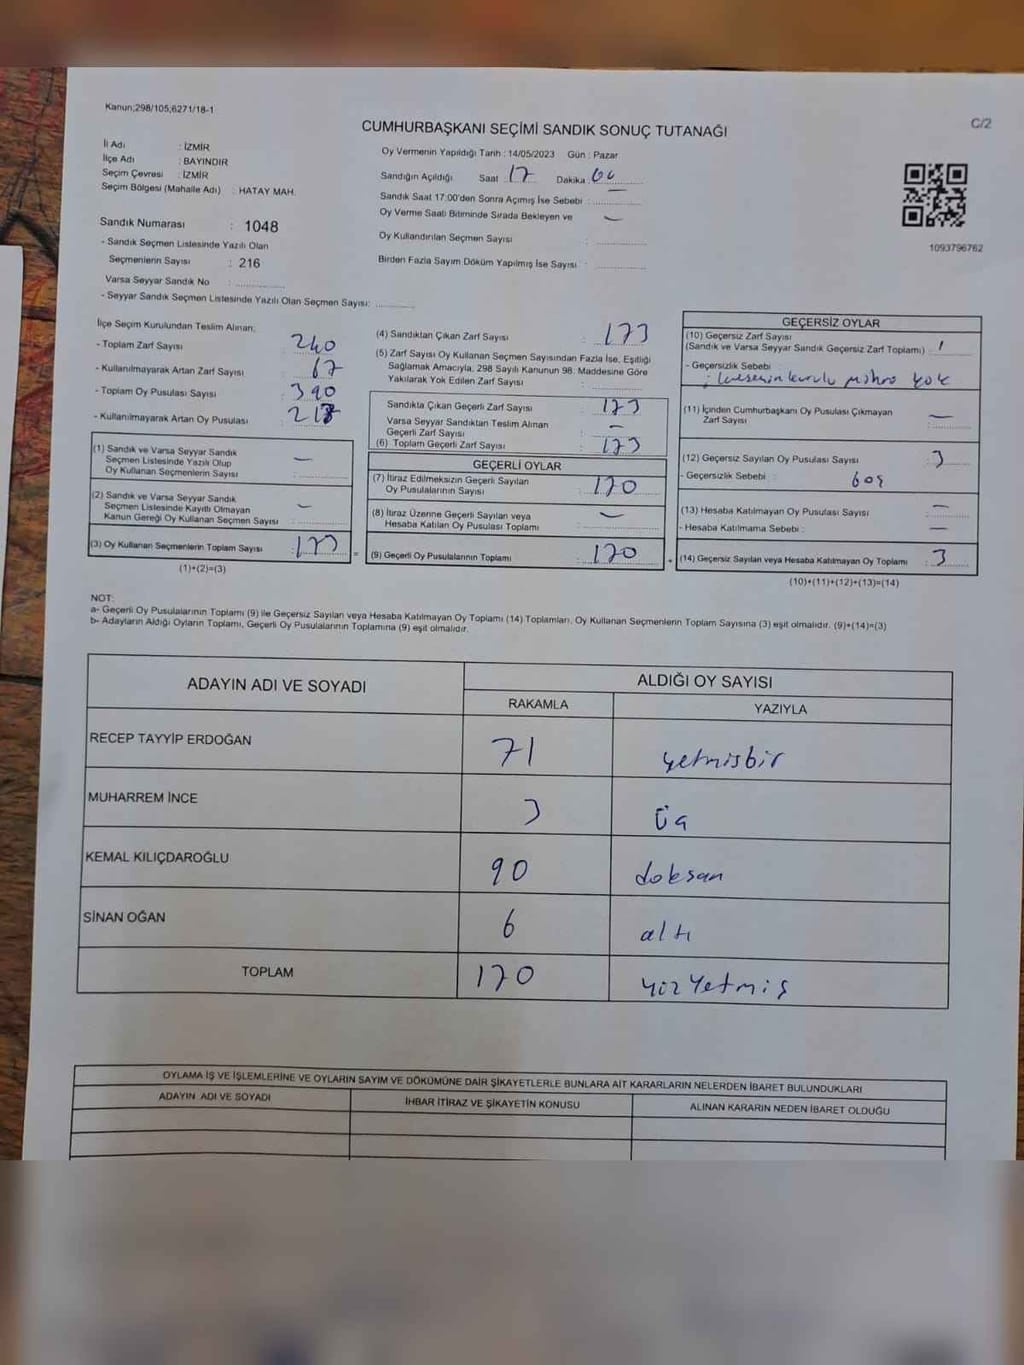 Kanun;298/105,6271/18-1
C/2
CUMHURBAŞKANI SEÇİMİ SANDIK SONUÇ TUTANAĞI
İl Adı : İZMİR
İlçe Adı : BAYINDIR
Seçim Çevresi : İZMİR
Seçim Bölgesi (Mahalle Adı) : HATAY MAH.
Sandık Numarası : 1048
- Sandık Seçmen Listesinde Yazılı Olan
Seçmenlerin Sayısı : 216
Varsa Seyyar Sandık No : ............
- Seyyar Sandık Seçmen Listesinde Yazılı Olan Seçmen Sayısı: ............
Oy Vermenin Yapıldığı Tarih : 14/05/2023 Gün : Pazar
Sandığın Açıldığı Saat : 17 Dakika :
Sandık Saat 17:00'den Sonra Açımış İse Sebebi : ............
Oy Verme Saati Bitiminde Sırada Bekleyen ve —
Oy Kullandırılan Seçmen Sayısı : ............
Birden Fazla Sayım Döküm Yapılmış İse Sayısı : ............
1093796762
İlçe Seçim Kurulundan Teslim Alınan;
- Toplam Zarf Sayısı : 240
- Kullanılmayarak Artan Zarf Sayısı : 67
- Toplam Oy Pusulası Sayısı : 390
- Kullanılmayarak Artan Oy Pusulası :
(1) Sandık ve Varsa Seyyar Sandık
Seçmen Listesinde Yazılı Olup
Oy Kullanan Seçmenlerin Sayısı : —
(2) Sandık ve Varsa Seyyar Sandık
Seçmen Listesinde Kayıtlı Olmayan
Kanun Gereği Oy Kullanan Seçmen Sayısı : —
(3) Oy Kullanan Seçmenlerin Toplam Sayısı : 173
(1)+(2)=(3)
(4) Sandıktan Çıkan Zarf Sayısı : 173
(5) Zarf Sayısı Oy Kullanan Seçmen Sayısından Fazla İse, Eşitliği
Sağlamak Amacıyla, 298 Sayılı Kanunun 98. Maddesine Göre
Yakılarak Yok Edilen Zarf Sayısı : ............
Sandıkta Çıkan Geçerli Zarf Sayısı : 173
Varsa Seyyar Sandıktan Teslim Alınan
Geçerli Zarf Sayısı : —
(6) Toplam Geçerli Zarf Sayısı : 173
GEÇERLİ OYLAR
(7) İtiraz Edilmeksizin Geçerli Sayılan
Oy Pusulalarının Sayısı : 170
(8) İtiraz Üzerine Geçerli Sayılan veya
Hesaba Katılan Oy Pusulası Toplamı : —
(9) Geçerli Oy Pusulalarının Toplamı : 170
GEÇERSİZ OYLAR
(10) Geçersiz Zarf Sayısı
(Sandık ve Varsa Seyyar Sandık Geçersiz Zarf Toplamı) :
- Geçersizlik Sebebi
: mührü yok
(11) İçinden Cumhurbaşkanı Oy Pusulası Çıkmayan
Zarf Sayısı : —
(12) Geçersiz Sayılan Oy Pusulası Sayısı : 3
- Geçersizlik Sebebi : boş
(13) Hesaba Katılmayan Oy Pusulası Sayısı : —
- Hesaba Katılmama Sebebi : —
(14) Geçersiz Sayılan veya Hesaba Katılmayan Oy Toplamı : 3
(10)+(11)+(12)+(13)=(14)
NOT:
a- Geçerli Oy Pusulalarının Toplamı (9) ile Geçersiz Sayılan veya Hesaba Katılmayan Oy Toplamı (14) Toplamları, Oy Kullanan Seçmenlerin Toplam Sayısına (3) eşit olmalıdır. (9)+(14)=(3)
b- Adayların Aldığı Oyların Toplamı, Geçerli Oy Pusulalarının Toplamına (9) eşit olmalıdır.
ADAYIN ADI VE SOYADI ALDIĞI OY SAYISI
RAKAMLA YAZIYLA
RECEP TAYYİP ERDOĞAN 71 yetmişbir
MUHARREM İNCE 3 Üç
KEMAL KILIÇDAROĞLU 90 doksan
SİNAN OĞAN 6 altı
TOPLAM 170 yüzyetmiş
OYLAMA İŞ VE İŞLEMLERİNE VE OYLARIN SAYIM VE DÖKÜMÜNE DAİR ŞİKAYETLERLE BUNLARA AİT KARARLARIN NELERDEN İBARET BULUNDUKLARI
ADAYIN ADI VE SOYADI İHBAR İTİRAZ VE ŞİKAYETİN KONUSU ALINAN KARARIN NEDEN İBARET OLDUĞU